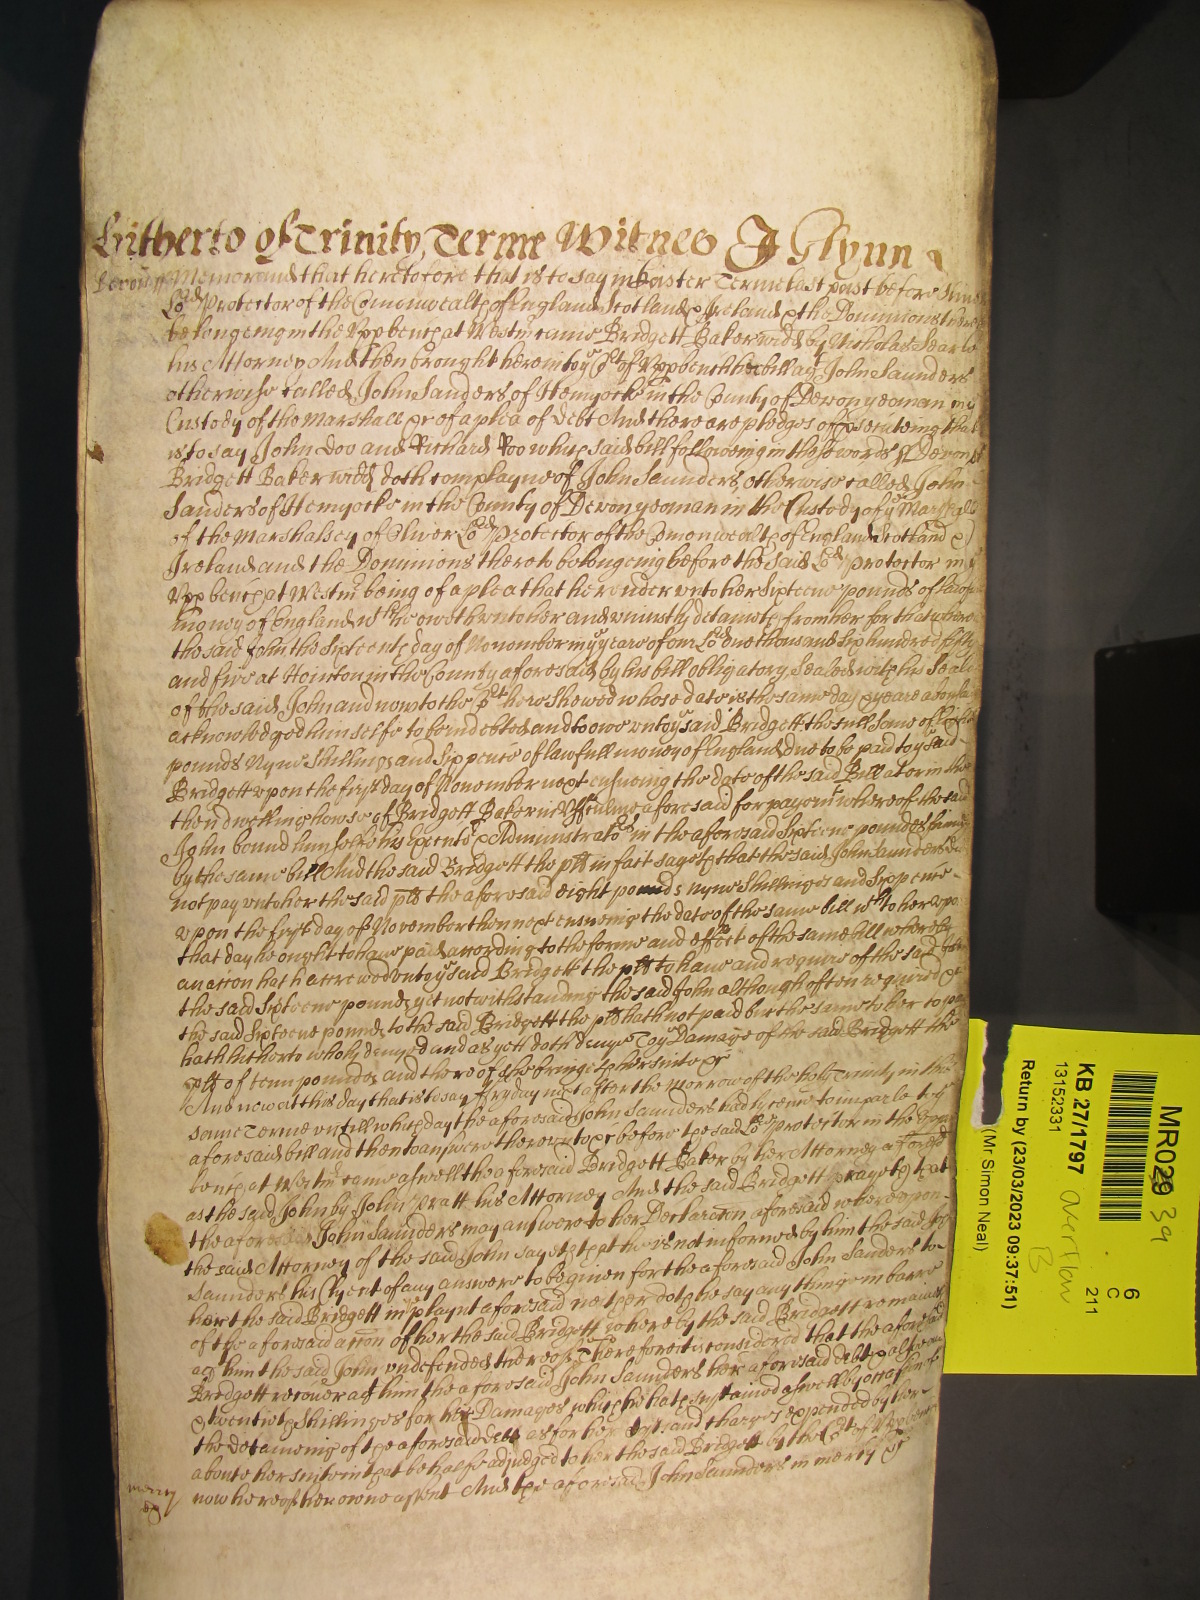 hitherto of Trinity Terme Witnes J Glynn
Devon ss Memorand that heretofore that is to say in Easter Terme last past before Oliver
Lord Protector of the Comonwealth of England Scotland & Ireland & the Dominions thereto
belongeing in the Upp bench at Westmr came Bridgett Baker widd by Nicholas Searle
his Attorney And then brought here into ye Ct of Upp bench her bill agt John Saunders
otherwise called John Sanders of Hemyocke in the County of Devon yeoman in ye
Custody of the Marshall &c of a plea of debt And there are pledges of prosecuteing that
is to say John Doo and Richard Roo which said bill followeing in these words ss Devon ss
Bridgett Baker widd doth complayne of John Saunders otherwise called John
Sanders of Hemyocke in the County of Devon yeoman in the Custody of ye Marshall
of the Marshalsey of Oliver Lord Protector of the Comonwealth of England Scotland &
Ireland and the Dominions thereto belongeing before the said Lord Protector in ye
Upp bench at Westmr being of a plea that he render unto her Sixteene pounds of lawfull
money of England wch he oweth unto her and uniustly detaineth from her for that wheras
the said John the Sixteenth day of November in ye yeare of our Lord one thousand six hundred fifty
and five at Honiton in the County aforesaid by his bill obligatory Sealed with the Seale
of the said John and now to the Ct here shewed whose date is the same day & yeare aboue
acknowledged himselfe to be indebted and to owe unto ye said Bridgett the full some of Eight
pounds Nyne Shillings and Sixpence of lawfull money of England due to be paid to ye said
Bridgett upon the first day of November next ensueing the date of the said Bill at or in the
then dwelling howse of Bridgett Baker in aforesaid for paymt whereof the said
John bound himselfe his Executrs & Administratrs in the aforesaid Sixteene poundes
by the same bill And the said Bridgett the plt in fact sayeth that the said John Saunders did
not pay unto her the said plt the aforesaid eight pounds nyne Shillinges and Sixpence
upon the first day of November then next ensueing the date of the same bill wch to her upon
that day he ought to haue paid according to the forme and effect of the same bill whereby
an accion hath accrewed unto ye said Bridgett the plt to haue and require of the said John
the said Sixteene pounds yet notwithstanding the said John although often required &c
the said Sixteene pounds to the said Bridgett the plt hath not paid but the same to her to pay
hath hitherto wholy denyed and as yett doth denye To ye Damage of the said Bridgett the
plt of tenn poundes and thereof she bringeth her suite &c
And now at this day that is to say fryday next after the Morrow of the holy Trinity in this
same Terme untill which day the aforesaid John Saunders had lycence to imparle to ye
aforesaid bill and then to answere thereunto &c before the said Lord Protector in the Upper
bench at Westmr came aswell the aforesaid Bridgett Baker by her Attorney aforesaid
as the said John by John Pratt his Attorney And the said Bridgett prayeth that
the aforesaid John Saunders may answere to her Declaracon aforesaid whereupon
the said Attorney of the said John sayeth that he is not informed by him the said John
Saunders his Clyent of any answere to be giuen for the aforesaid John Sanders to
her the said Bridgett in ye playnt aforesaid neither doth he say any thing in barre
of the aforesaid accon of her the said Bridgett whereby the said Bridgett remaines
agt him the said John undefended thereof Therefore it is considered that the aforesaid
Bridgett recouer agt him the aforesaid John Saunders her aforesaid debt & alsoe
& twentie Shillinges for her Damages which she hath sustained aswell by occasion of
the detaineing of the aforesaid debt as for her costs and charges expended by her
aboute her suite in that behalfe adjudged to her the said Bridgett by the Ct of Upp bench
now here of her owne assent And the aforesaid John Saunders in mercy &c
mercy
&c
MR029 39
6
C
211
KB 27/1797 overflow
B
13152331
Return by (23/03/2023 09:37:51)
(Mr Simon Neal)